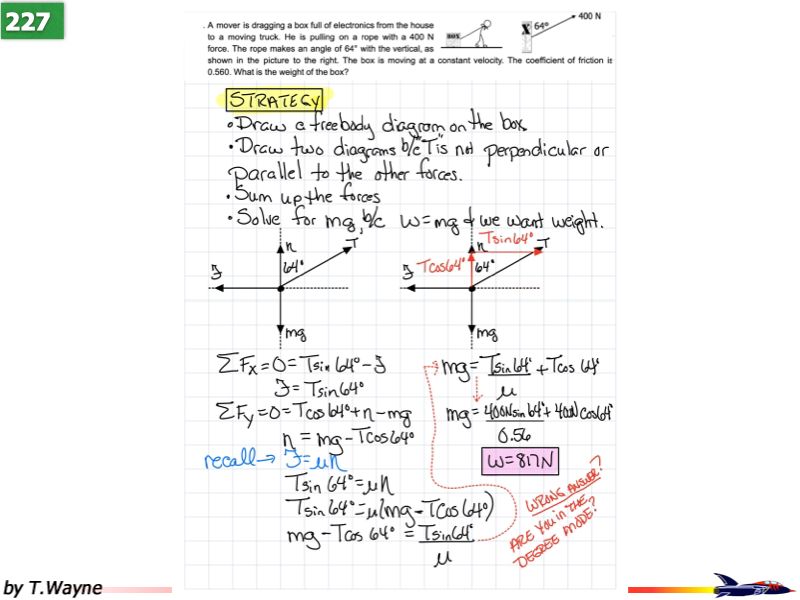 227
. A mover is dragging a box full of electronics from the house
to a moving truck. He is pulling on a rope with a 400 N
force. The rope makes an angle of 64° with the vertical, as
shown in the picture to the right. The box is moving at a constant velocity. The coefficient of friction is
0.560. What is the weight of the box?
BOX
X 64° 400 N
STRATEGY
• Draw a freebody diagram on the box
• Draw two diagrams b/c "T" is not perpendicular or
parallel to the other forces.
• Sum up the forces
• Solve for mg, b/c W=mg & we want weight.
n T
64°
F
mg
Tsin64°
n T
Tcos64° 64°
F
mg
ΣFx=0=Tsin64°-F
F=Tsin64°
ΣFy=0=Tcos64°+n-mg
n=mg-Tcos64°
recall→ F=μn
Tsin64°=μn
Tsin64°=μ(mg-Tcos64°)
mg-Tcos64°=Tsin64°
μ
mg=Tsin64°+Tcos64°
μ
mg=400Nsin64°+400Ncos64°
0.56
W=817N
WRONG ANSWER?
ARE YOU IN THE
DEGREE MODE?
by T.Wayne